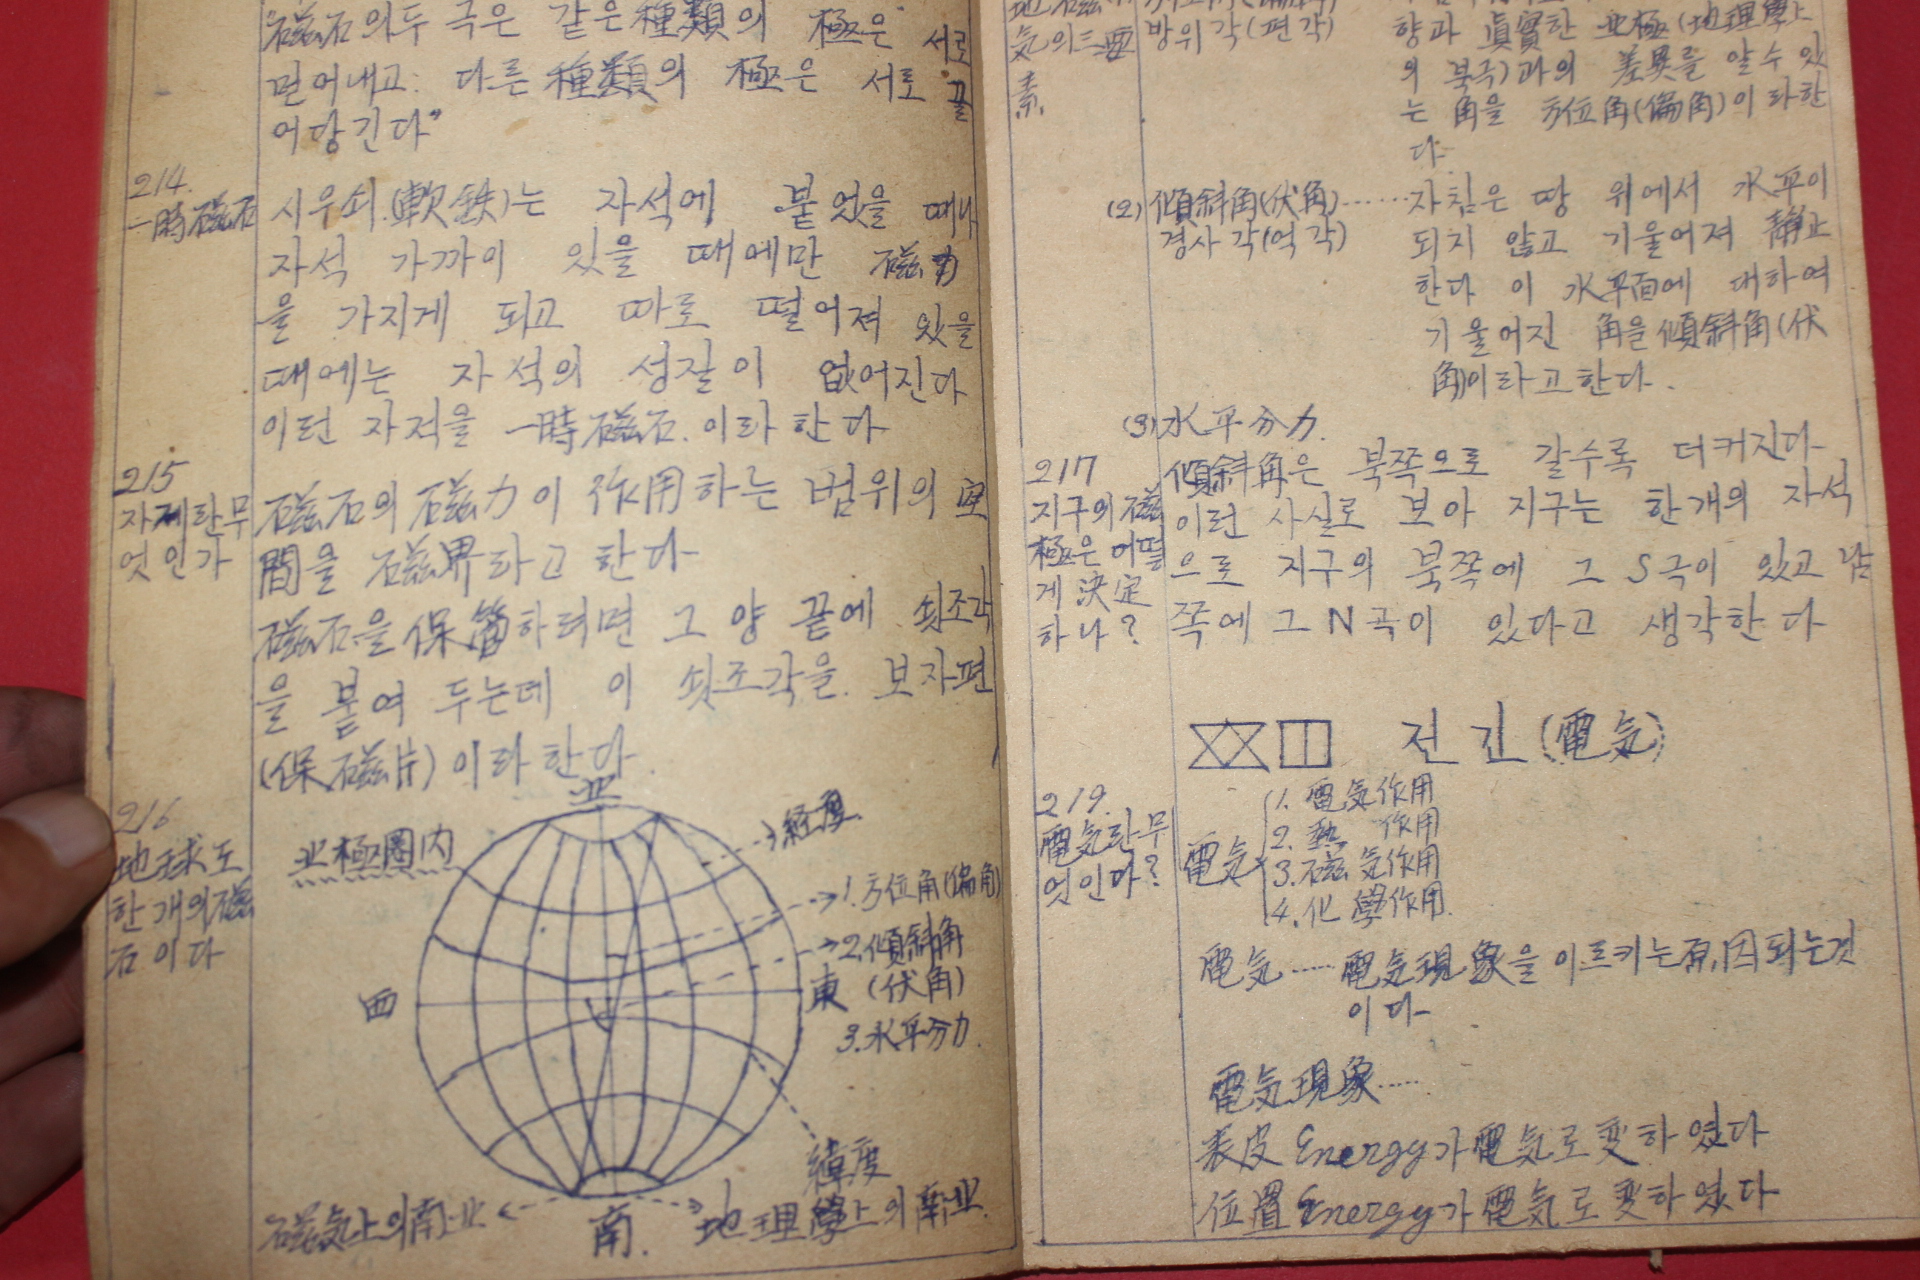 磁石의 두 극은 같은 種類의 極은 서로
밀어내고 다른 種類의 極은 서로 끌
어당긴다"
214.
一時磁石
시우쇠(軟鉄)는 자석에 붙었을 때나
자석 가까이 있을 때에만 磁力
을 가지게 되고 따로 떨어져 있을
때에는 자석의 성질이 없어진다
이런 자적을 一時磁石이라 한다
215
자계란 무
엇인가
磁石의 磁力이 作用하는 범위의 空
間을 磁界라고 한다
磁石을 保管하려면 그 양 끝에 쇳조각
을 붙여 두는데 이 쇳조각을 보자편
(保磁片)이라 한다.
216
地球도
한 개의 磁
石이다
北
北極圈内
経度
1.方位角(偏角)
2.傾斜角
(伏角)
3.水平分力.
西
東
緯度
磁気上의 南北
南.
地理學上의 南北.
気의 三要
素.
방위각(편각)
향과 眞實한 北極(地理學上
의 북극)과의 差異를 알 수 있
는 角을 方位角(偏角)이라 한
다.
(2) 傾斜角(伏角)……자침은 땅 위에서 水平이
경사각(억각)
되지 않고 기울어져 静止
한다 이 水平面에 대하여
기울어진 角을 傾斜角(伏
角)이라고 한다.
(3) 水平分力.
217
지구의 磁
極은 어떻
게 決定
하나?
傾斜角은 북쪽으로 갈수록 더 커진다
이런 사실로 보아 지구는 한 개의 자석
으로 지구의 북쪽에 그 S극이 있고 남
쪽에 그 N곡이 있다고 생각한다
전긴(電気)
219.
電気란 무
엇인다?
電気
1. 電気作用
2. 熱 作用
3. 磁気作用
4. 化學作用.
電気……電気現象을 이르키는 原因되는 것
이다
電気現象……
表皮 Energy가 電気로 変하였다
位置 Energy가 電気로 変하였다